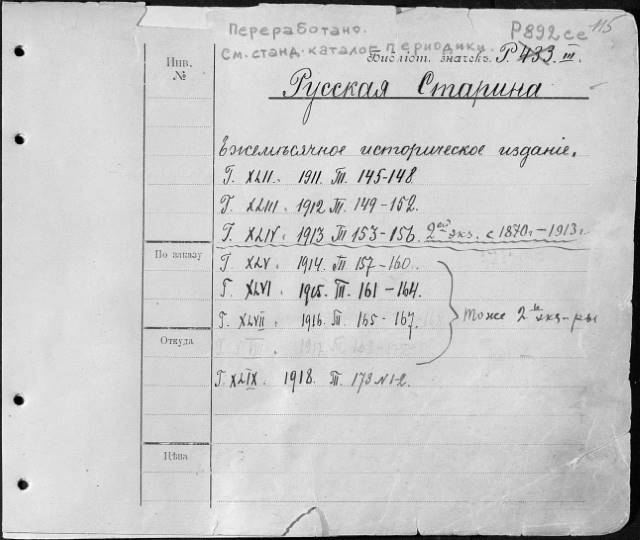 Переработано.
Р892се 115
См. станд. каталог периодики.
Библіот. значекъ. Р 433. III.
Инв.
№
Русская Старина
Ежемѣсячное историческое изданіе.
Г. XLII. 1911. Т. 145-148.
Г. XLIII. 1912 Т. 149-152.
Г. XLIV. 1913 Т 153-156. 2ой экз. с 1870г-1913г
По заказу
Г. XLV. 1914. Т 157-160.
Г. XLVI 1915. Т. 161-164.
Г. XLVII. 1916. Т. 165-167.
тоже 2ые экз-ры
Откуда
Г. XLIX. 1918. Т. 173 N1-2.
Цѣна